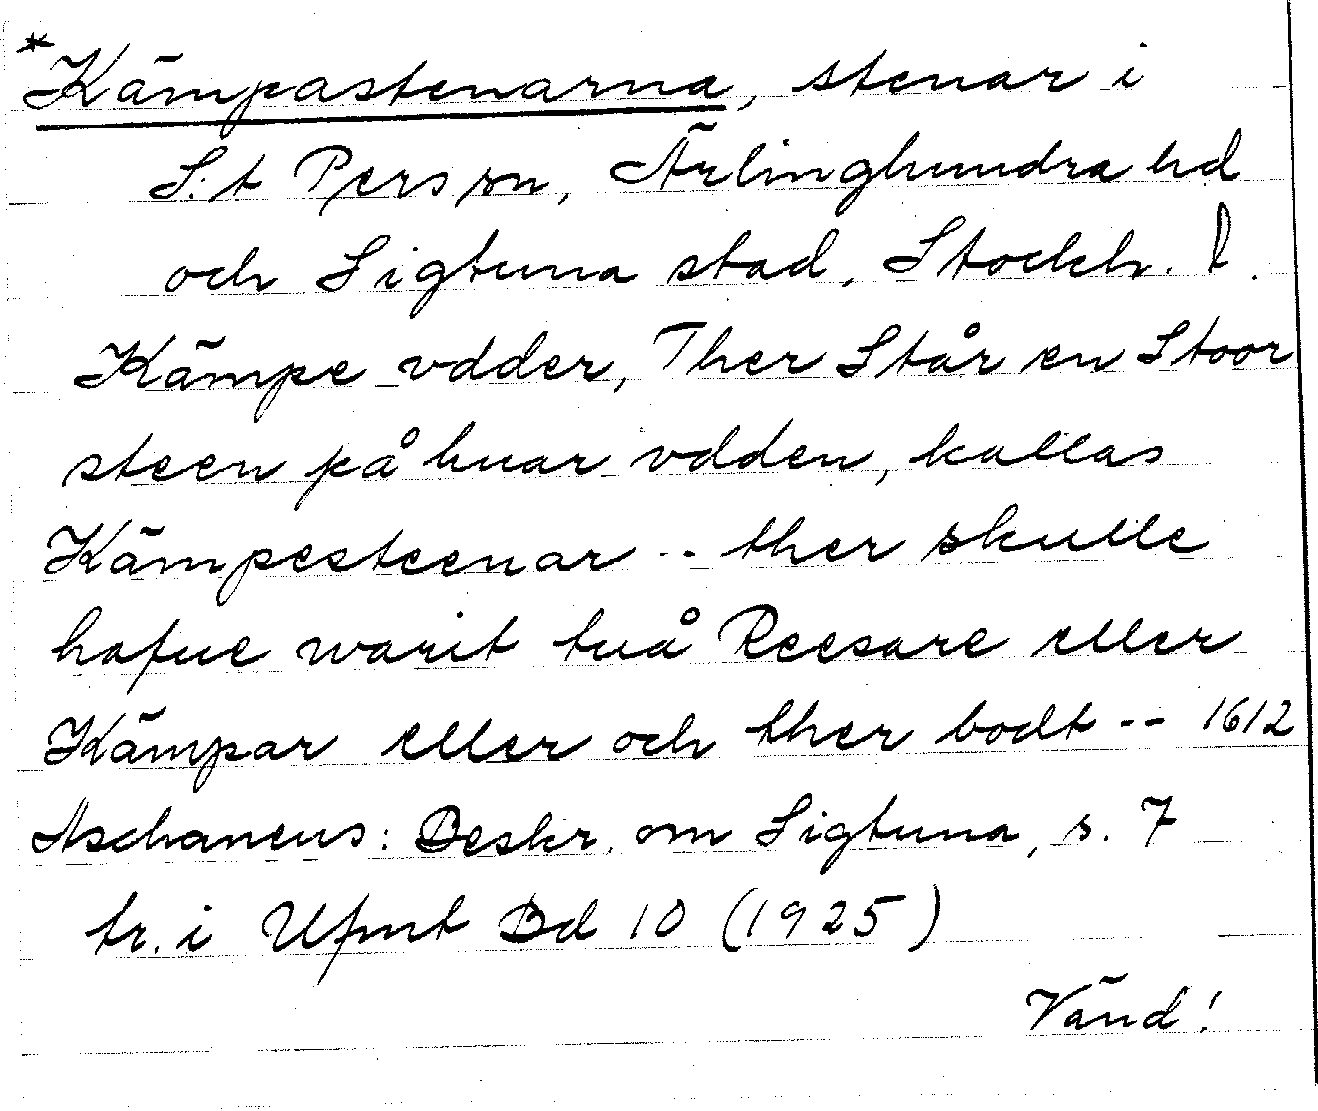 *Kämpastenarna, stenar i
S:t Pers sn, Ärlinghundra hd
och Sigtuna stad, Stockh. l.
Kämpe vdder, Ther Står en Stoor
steen på huar vdden, kallas
Kämpesteenar -- ther skulle
hafue warit tuå Reesare eller
Kämpar eller och ther bodt -- 1612
Aschaneus: Beskr. om Sigtuna, s. 7
tr. i Ufmt Bd 10 (1925)
Vänd!